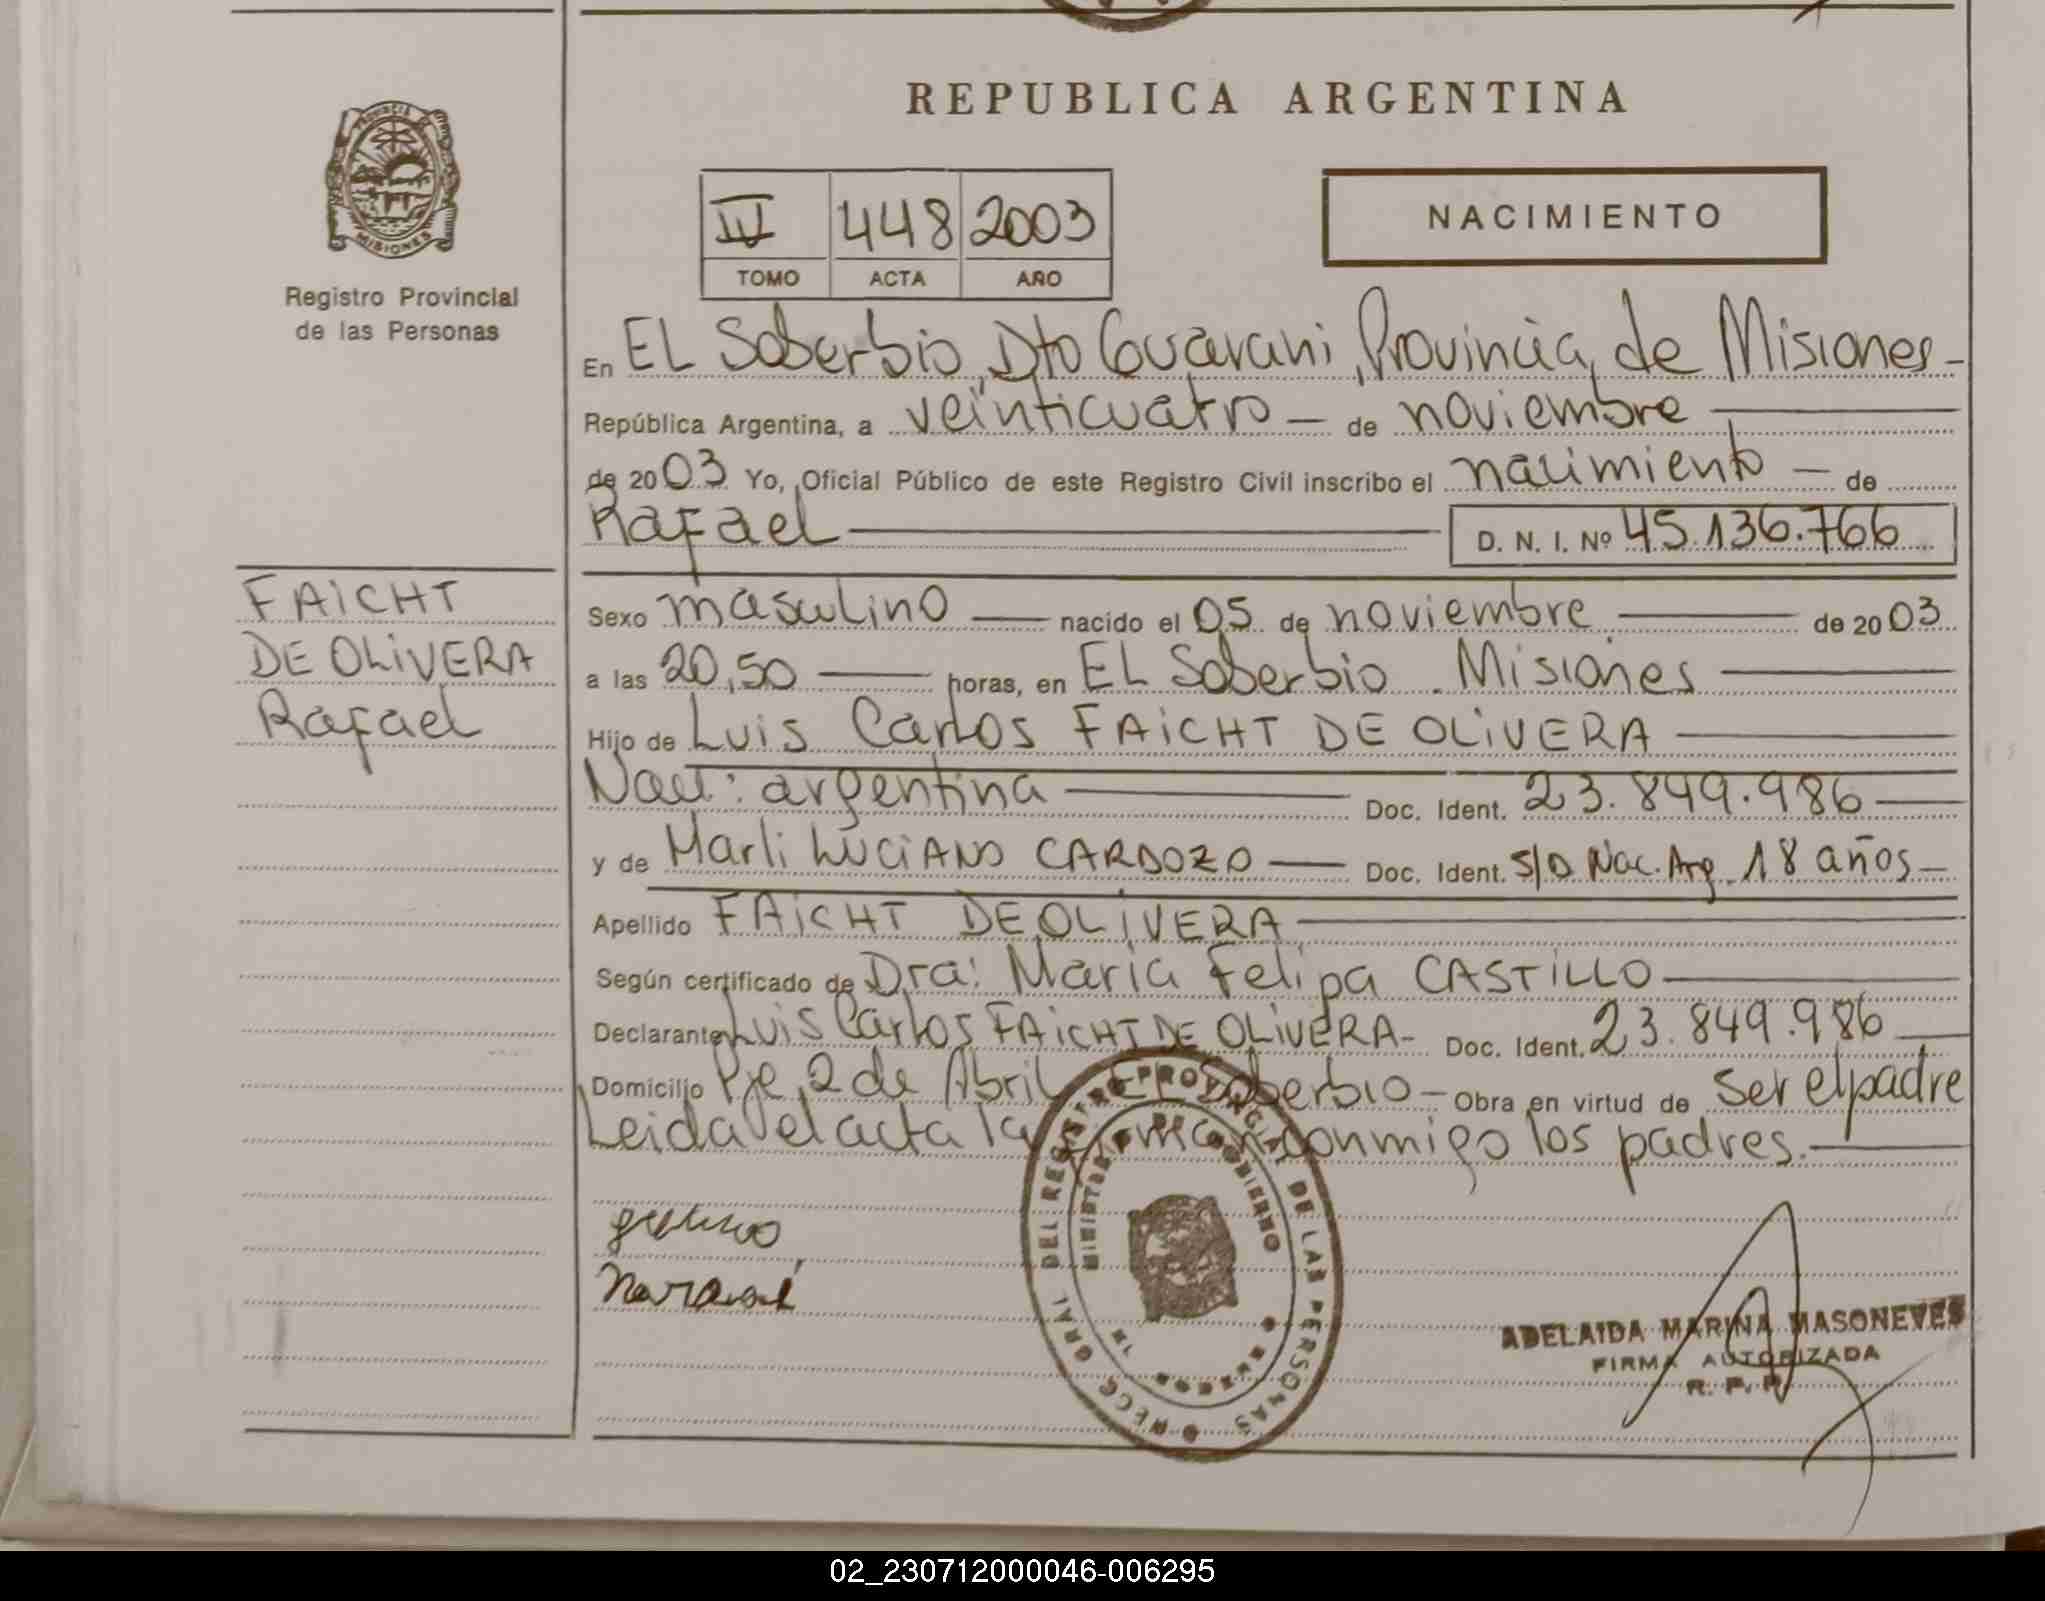 REPUBLICA ARGENTINA
PROVINCIA
MISIONES
Registro Provincial
de las Personas
IV 448 2003
TOMO ACTA AÑO
NACIMIENTO
En EL Soberbio, Dto Guarani, Provincia de Misiones -
República Argentina, a veinticuatro — de noviembre —
de 2003 Yo, Oficial Público de este Registro Civil inscribo el nacimiento — de
Rafael — D. N. I. Nº 45.136.766
FAICHT
DE OLIVERA
Rafael
Sexo masculino — nacido el 05 de noviembre — de 2003
a las 20,50 — horas, en EL Soberbio . Misiones —
Hijo de Luis Carlos FAICHT DE OLIVERA —
Nac: argentina — Doc. Ident. 23.849.986 —
y de Marli LUCIANO CARDOZO — Doc. Ident. S/D Nac. Arg. 18 años —
Apellido FAICHT DE OLIVERA —
Según certificado de Dra: Maria Felipa CASTILLO —
Declarante Luis Carlos FAICHT DE OLIVERA - Doc. Ident. 23.849.986 —
Domicilio Pje 2 de Abril EL Soberbio - Obra en virtud de Ser el padre
Leida el acta la firman conmigo los padres. —
DEL REGISTRO PROVINCIAL DE LAS PERSONAS
MINISTERIO DE GOBIERNO
ADELAIDA MARINA MASONEVES
FIRMA AUTORIZADA
R. P. P.
02_230712000046-006295